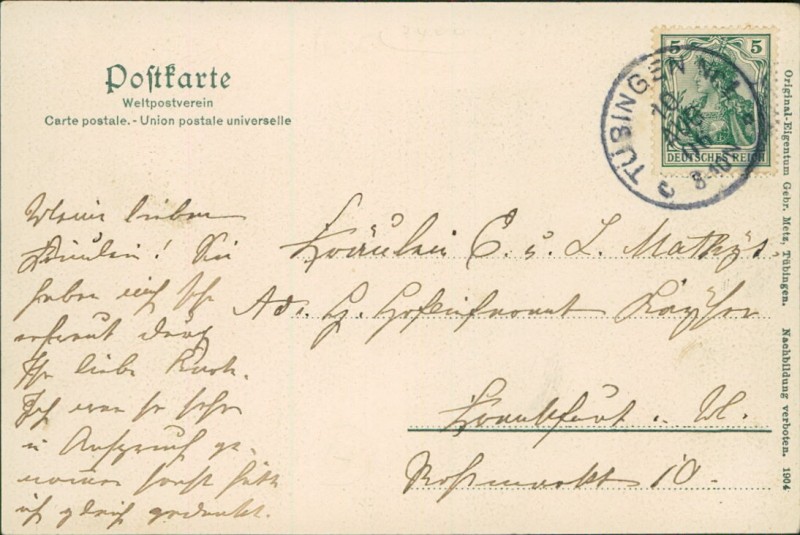 Postkarte
Weltpostverein
Carte postale. - Union postale universelle
5 5
DEUTSCHES REICH
TÜBINGEN No. 1
10
AUG
8-10 N
Meine lieben
Fräulein! Sie
haben mich sehr
erfreut durch
Ihr liebe Karte.
Ich war so sehr
in Anspruch ge-
nommen sonst hätte
ich gleich gedankt.
Fräulein E. u. L. Mathÿs.
Adr. H. Hoflieferant
Frankfurt a. M.
Roßmarkt 10.
Original-Eigentum Gebr. Metz, Tübingen. Nachbildung verboten. 1904